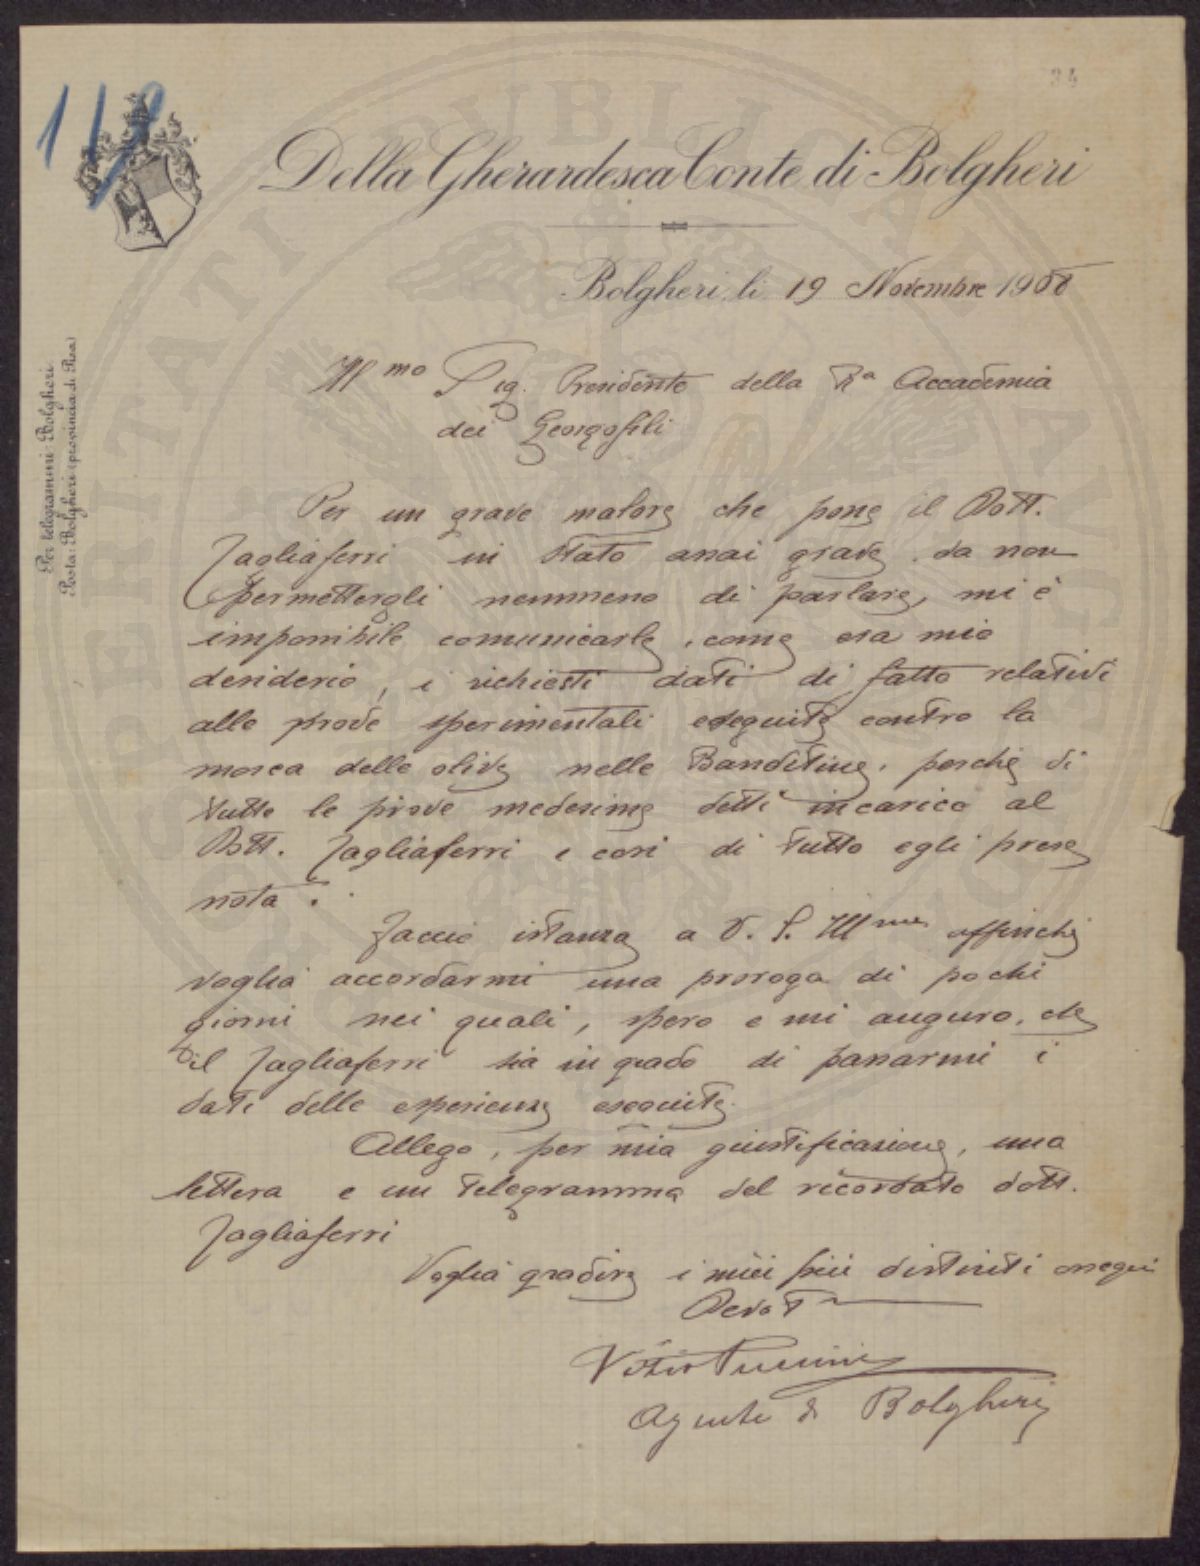 34
119
Della Gherardesca Conte di Bolgheri
Bolgheri, li 19 Novembre 1908
Per telegrammi Bolgheri
Posta: Bolgheri (provincia di Pisa)
Ill.mo Sig. Presidente della Ra Accademia
dei Georgofili
Per un grave malore che pone il Dott.
Tagliaferri in stato assai grave da non
permettergli nemmeno di parlare, mi è
impossibile comunicarle, come era mio
desiderio, i richiesti dati di fatto relativi
alle prove sperimentali eseguite contro la
mosca delle olive nelle Banditine, perchè di
tutte le prove medesime detti incarico al
Dott. Tagliaferri e così di tutto egli prese
nota.
Faccio istanza a V. S. Ill.ma affinchè
voglia accordarmi una proroga di pochi
giorni nei quali, spero e mi auguro, che
il Tagliaferri sia in grado di passarmi i
dati delle esperienze eseguite.
Allego, per mia giustificazione, una
lettera e un telegramma del ricordato dott.
Tagliaferri
Voglia gradire i miei più distinti ossequi
Devot
Agente di Bolgheri